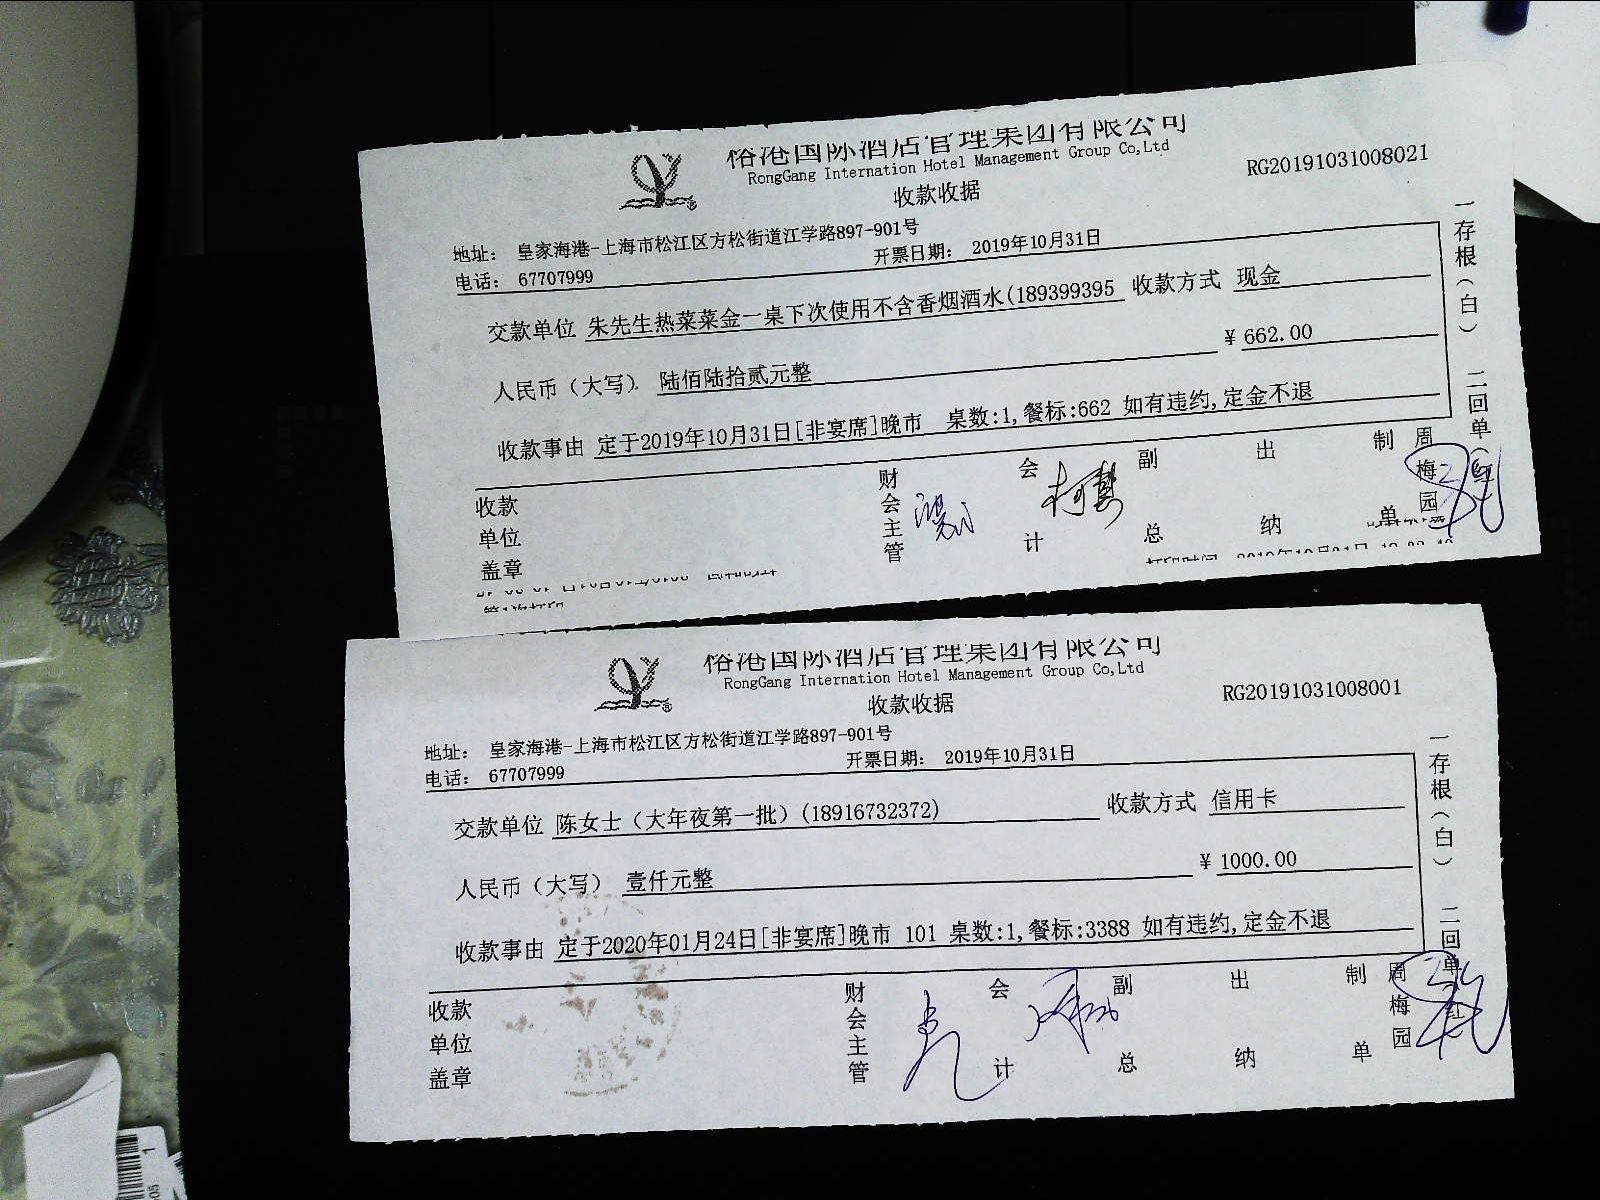 裕港国际酒店管理集团有限公司
RongGang Internation Hotel Management Group Co,Ltd
收款收据
RG20191031008021
地址： 皇家海港-上海市松江区方松街道江学路897-901号
电话： 67707999
开票日期： 2019年10月31日
交款单位 朱先生热菜菜金一桌下次使用不含香烟酒水(189399395 收款方式 现金
人民币（大写） 陆佰陆拾贰元整 ¥ 662.00
收款事由 定于2019年10月31日[非宴席]晚市 桌数:1,餐标:662 如有违约,定金不退
收款单位盖章 财会主管 会计 副总 出纳 制单 周梅园
一存根（白） 二回单（红）
第1次打印
裕港国际酒店管理集团有限公司
RongGang Internation Hotel Management Group Co,Ltd
收款收据
RG20191031008001
地址： 皇家海港-上海市松江区方松街道江学路897-901号
电话： 67707999
开票日期： 2019年10月31日
交款单位 陈女士（大年夜第一批）(18916732372) 收款方式 信用卡
人民币（大写） 壹仟元整 ¥ 1000.00
收款事由 定于2020年01月24日[非宴席]晚市 101 桌数:1,餐标:3388 如有违约,定金不退
收款单位盖章 财会主管 会计 副总 出纳 制单 周梅园
一存根（白） 二回单 红